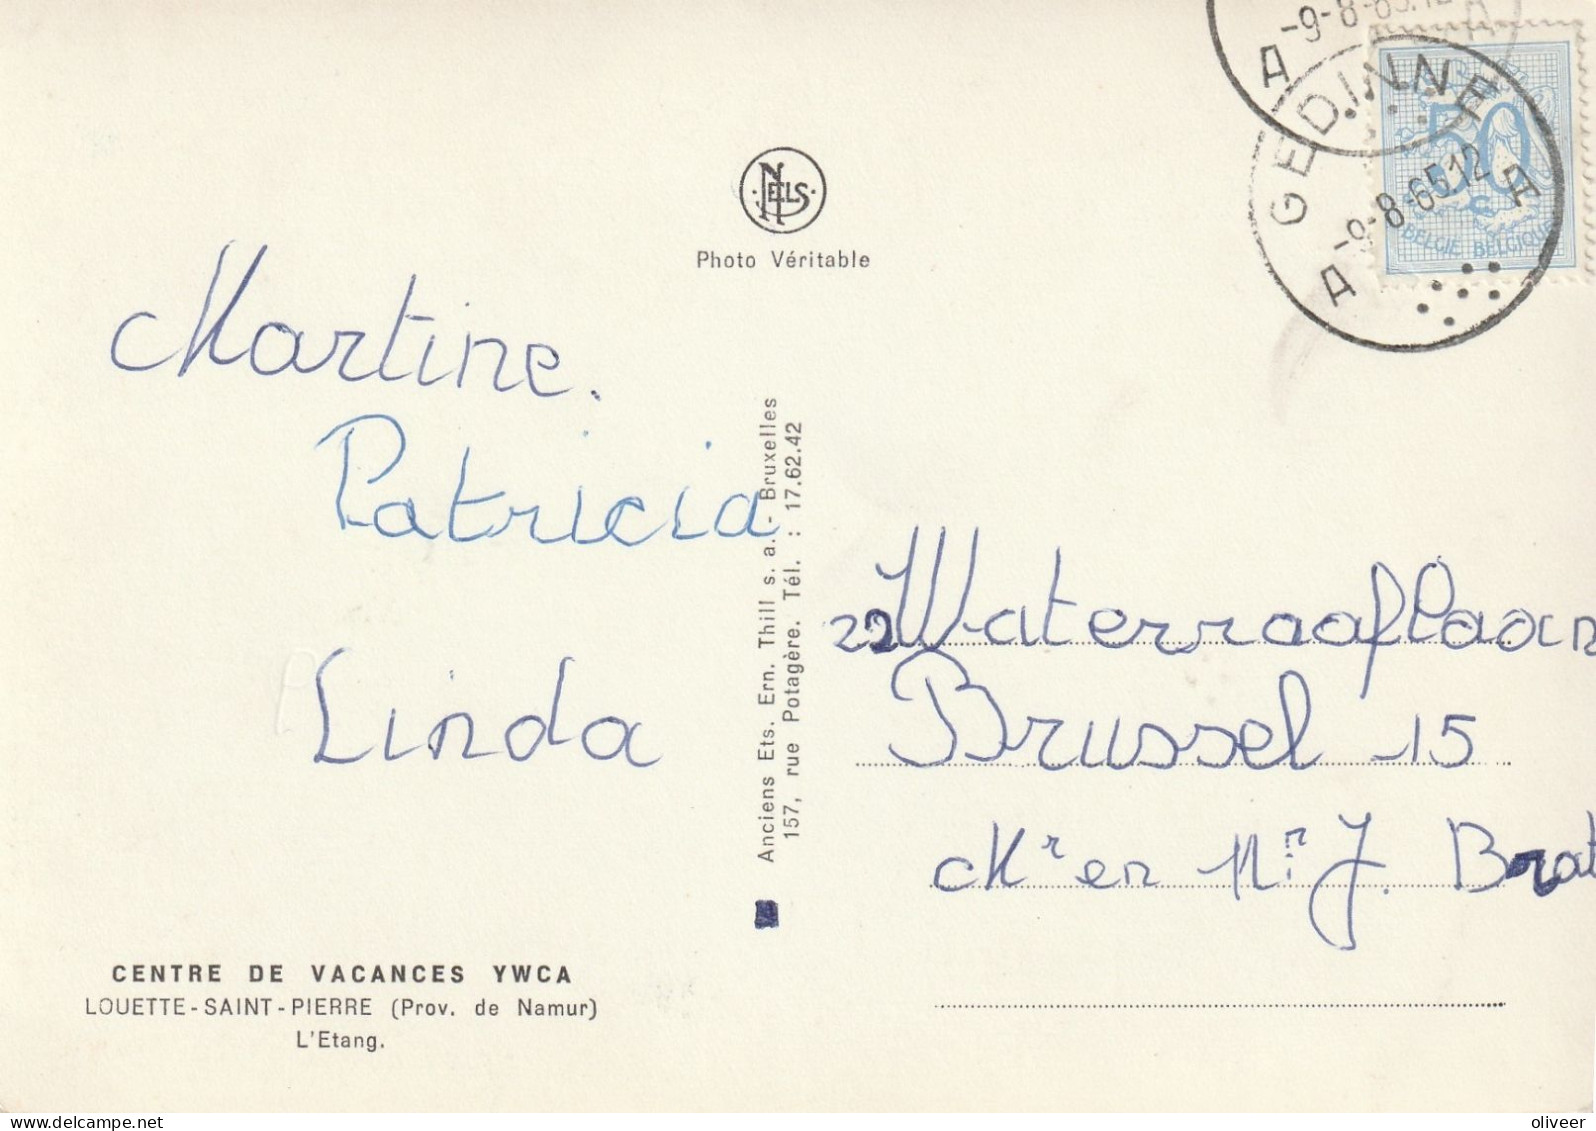 -9-8-65.12
A
GEDINNE
-9-8-6512
A
A
50
BELGIE BELGIQUE
NELS
Photo Véritable
Martine.
Patricia
Linda
Anciens Ets. Ern. Thill s. a. - Bruxelles
157, rue Potagère. Tél. : 17.62.42
22 Waterraaflaan
Brussel -15
Mr en Mr J. Brat
CENTRE DE VACANCES YWCA
LOUETTE-SAINT-PIERRE (Prov. de Namur)
L'Etang.
delcampe.net
oliveer